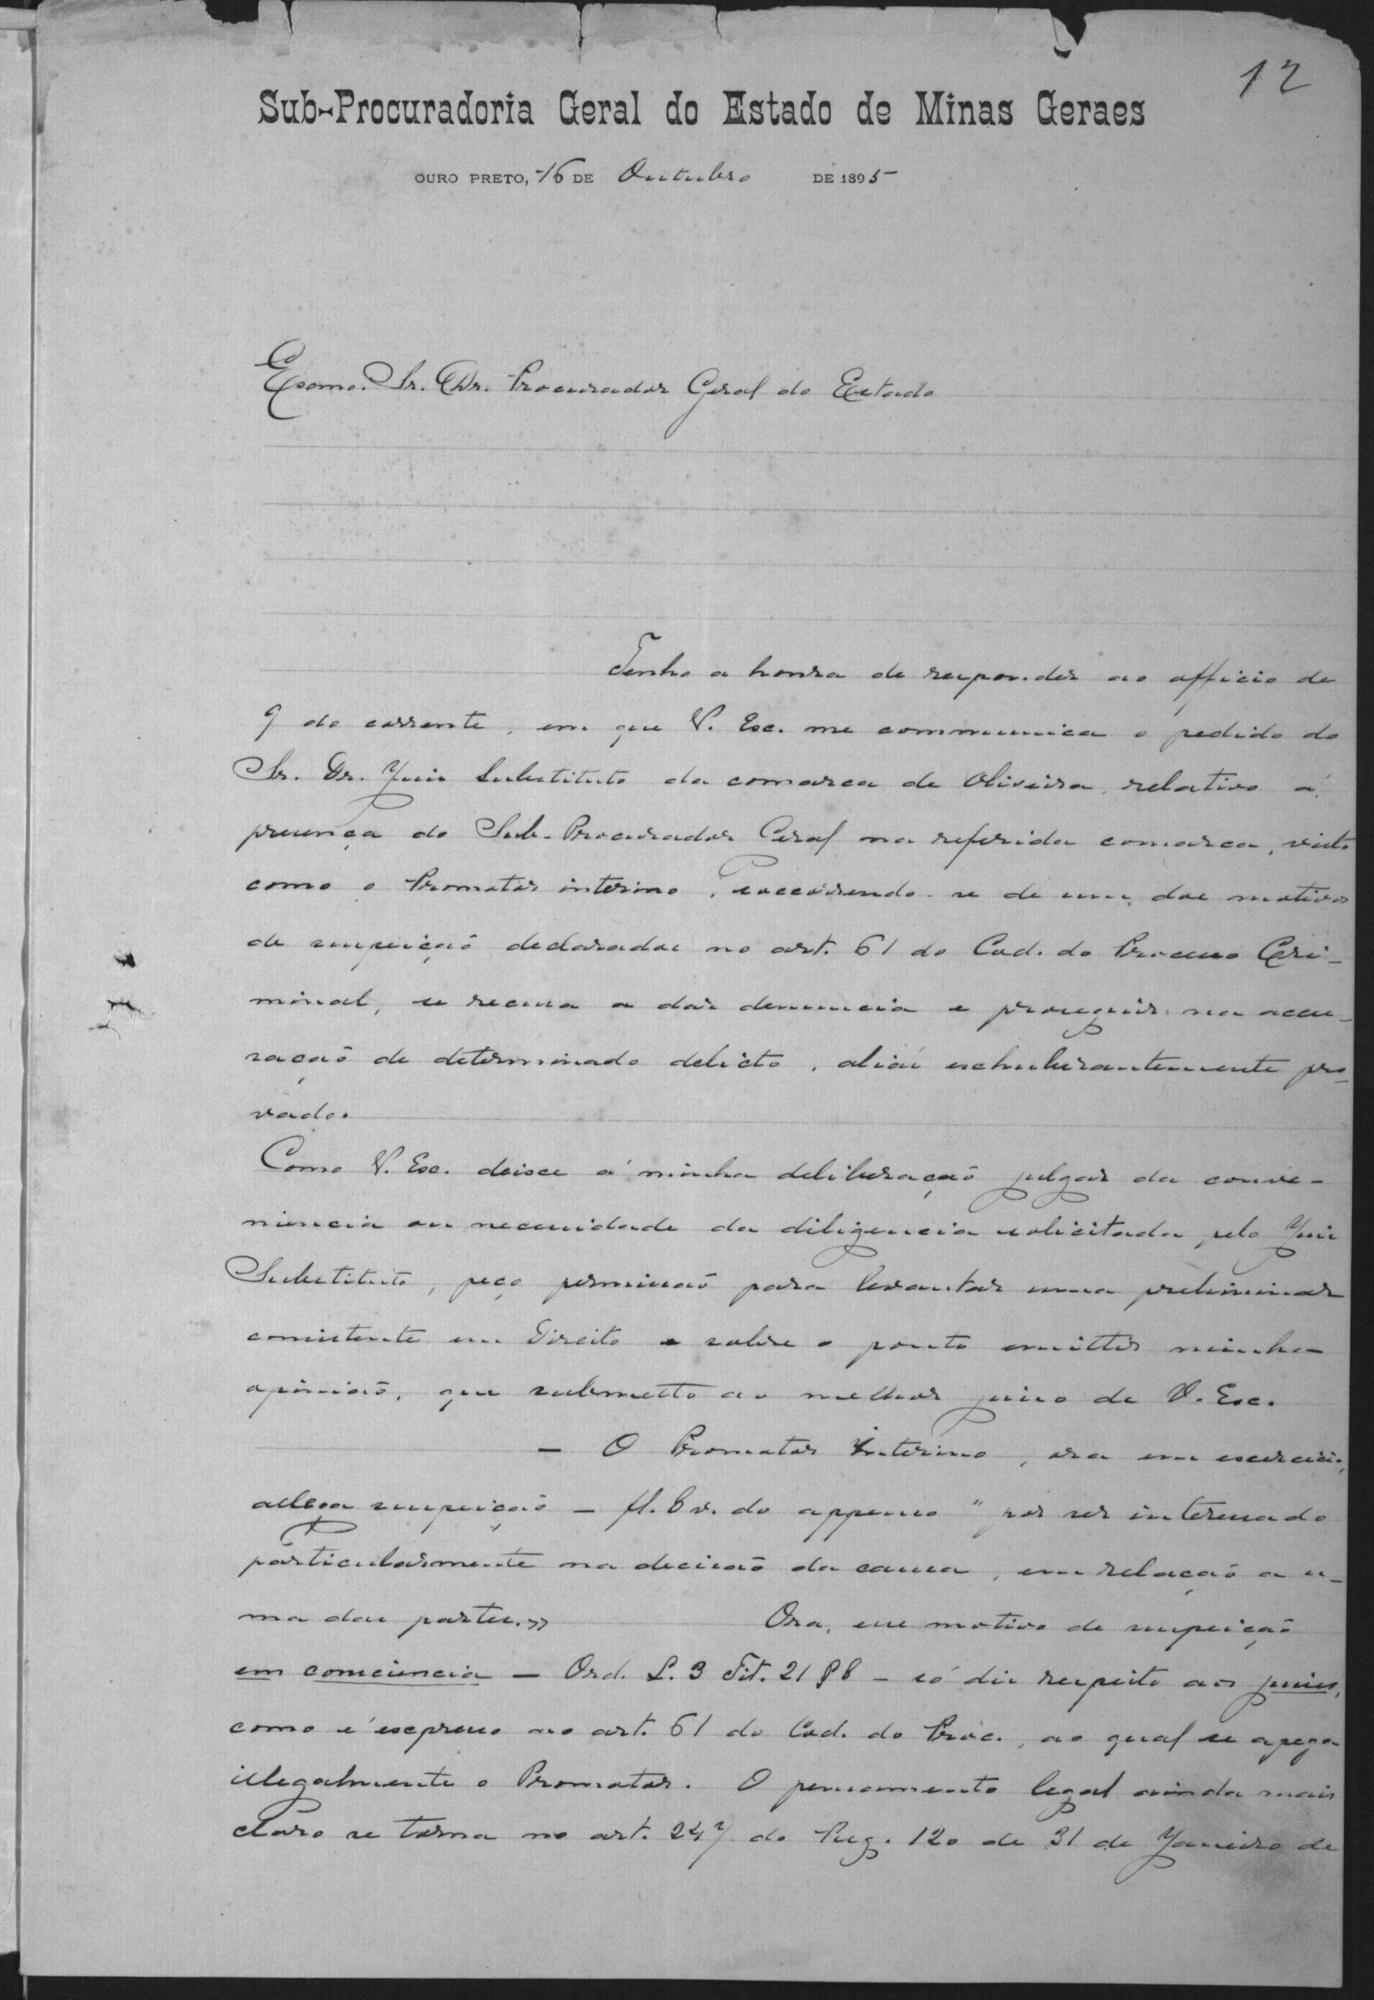 12
Sub-Procuradoria Geral do Estado de Minas Geraes
OURO PRETO, 16 DE Outubro DE 1895
Exmo. Sr. Dr. Procurador Geral do Estado
Tenho a honra de responder ao officio de
9 do corrente, em que V. Exc. me communica o pedido do
Sr. Dr. Juiz Substituto da comarca de Oliveira, relativo á
presença do Sub-Procurador Geral na referida comarca, visto
como o Promotor interino, soccorrendo-se de um dos motivos
de suspeição declarados no art. 61 do Cod. do Processo Cri-
minal, se recusa a dar denuncia e proseguir na accu-
sação de determinado delicto, aliás exhuberantemente pro-
vado.
Como V. Exc. deixe á minha deliberação julgar da conve-
niencia ou necessidade da diligencia solicitada pelo Juiz
Substituto, peço permissão para levantar uma preliminar
consistente em Direito e sobre o ponto emitter minha
opinião, que submetto ao melhor juizo de V. Exc.
— O Promotor Interino, ora em exercicio,
allega suspeição — fl. 6 v. do appenso "por ser interessado
particularmente na decisão da causa, em relação a u-
ma das partes.»  Ora, esse motivo de suspeição
em consciencia — Ord. L. 3 Tit. 21 § 8 — só diz respeito aos juizes,
como é expresso no art. 61 do Cod. do Proc., ao qual se apega
illegalmente o Promotor. O pensamento legal ainda mais
claro se torna no art. 247 do Reg. 120 de 31 de Janeiro de